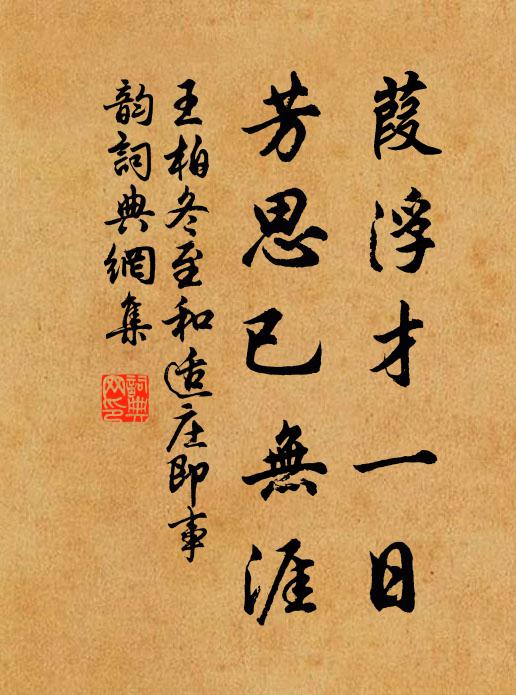 葭浮才一日
芳思已無涯
王柏冬至和適庄即事
韵詞典網集
詞典網印